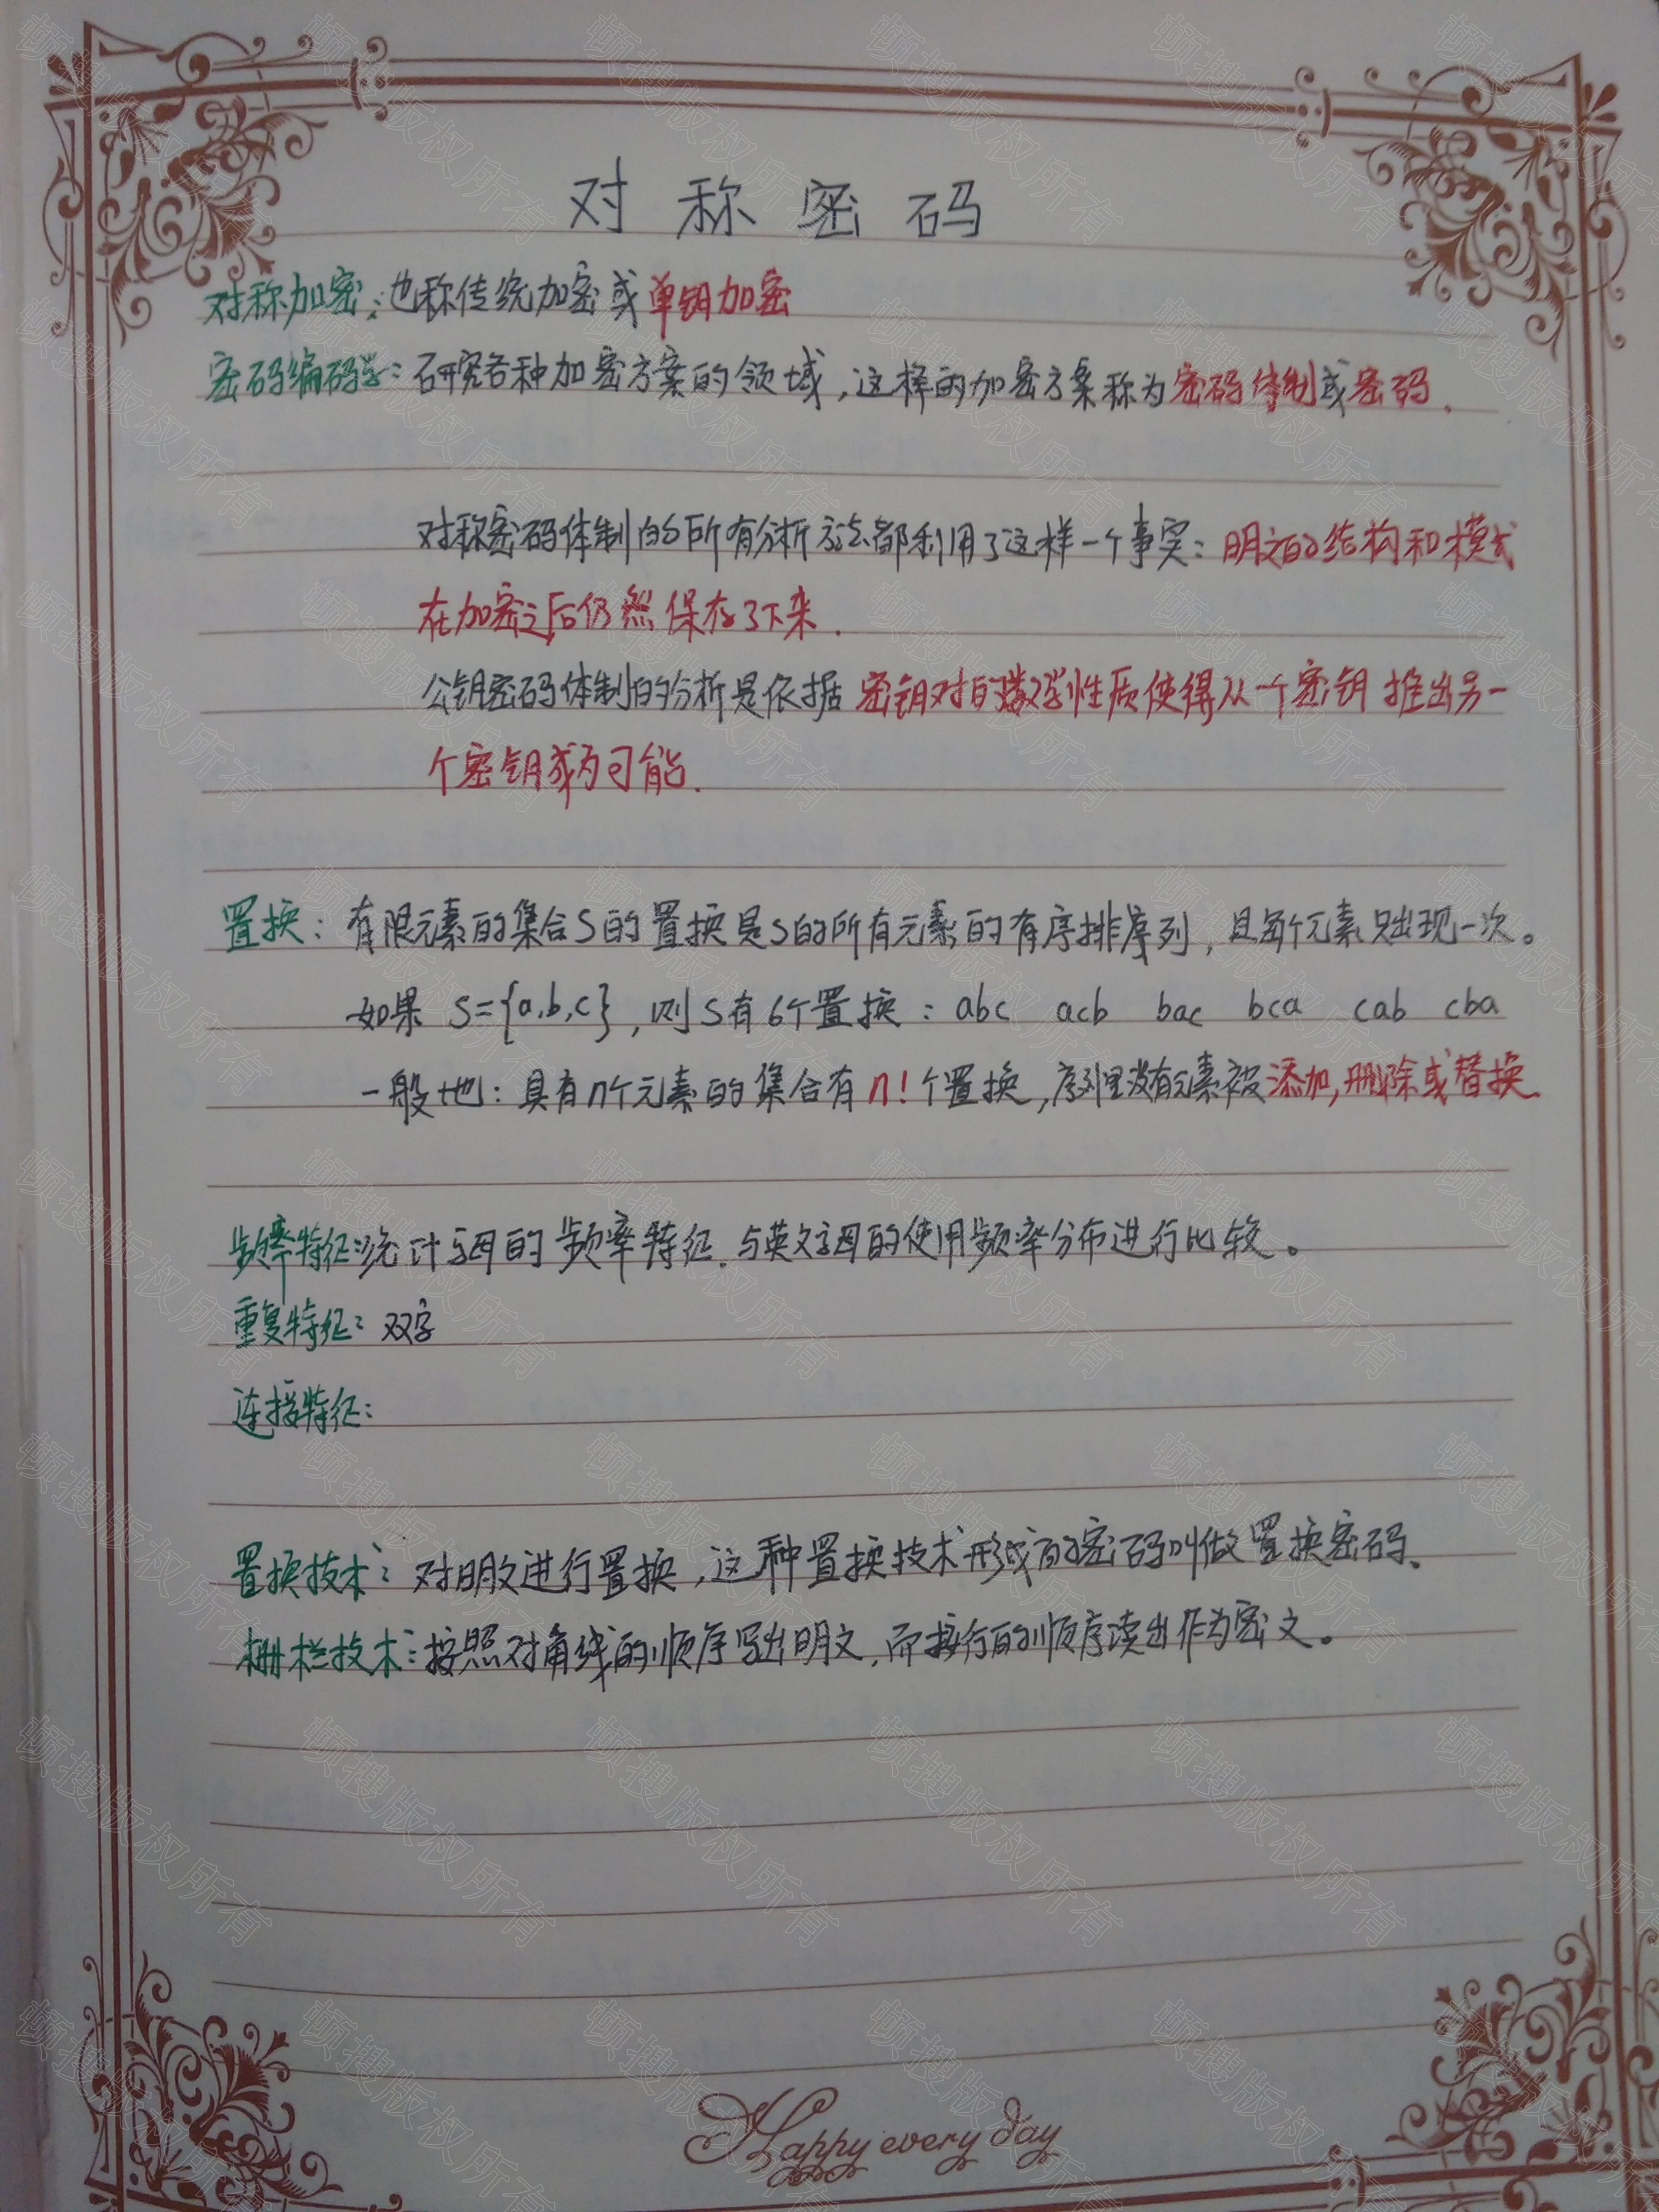 对称密码
对称加密：也称传统加密或单钥加密
密码编码学：研究各种加密方案的领域，这样的加密方案称为密码体制或密码.
对称密码体制的所有分析方法都利用了这样一个事实：明文的结构和模式
在加密之后仍然保存了下来.
公钥密码体制的分析是依据密钥对的数学性质使得从一个密钥推出另一
个密钥成为可能.
置换：有限元素的集合S的置换是S的所有元素的有序排序列，且每个元素只出现一次。
如果 S={a,b,c}，则S有6个置换：abc acb bac bca cab cba
一般地：具有n个元素的集合有n!个置换，序列里没有元素被添加,删除或替换
频率特征：统计字母的频率特征.与英文字母的使用频率分布进行比较。
重复特征：双字
连接特征：
置换技术：对明文进行置换，这种置换技术形成的密码叫做置换密码、
栅栏技术：按照对角线的顺序写出明文,而按行的顺序读出作为密文。
Happy every day
顿搜版权所有